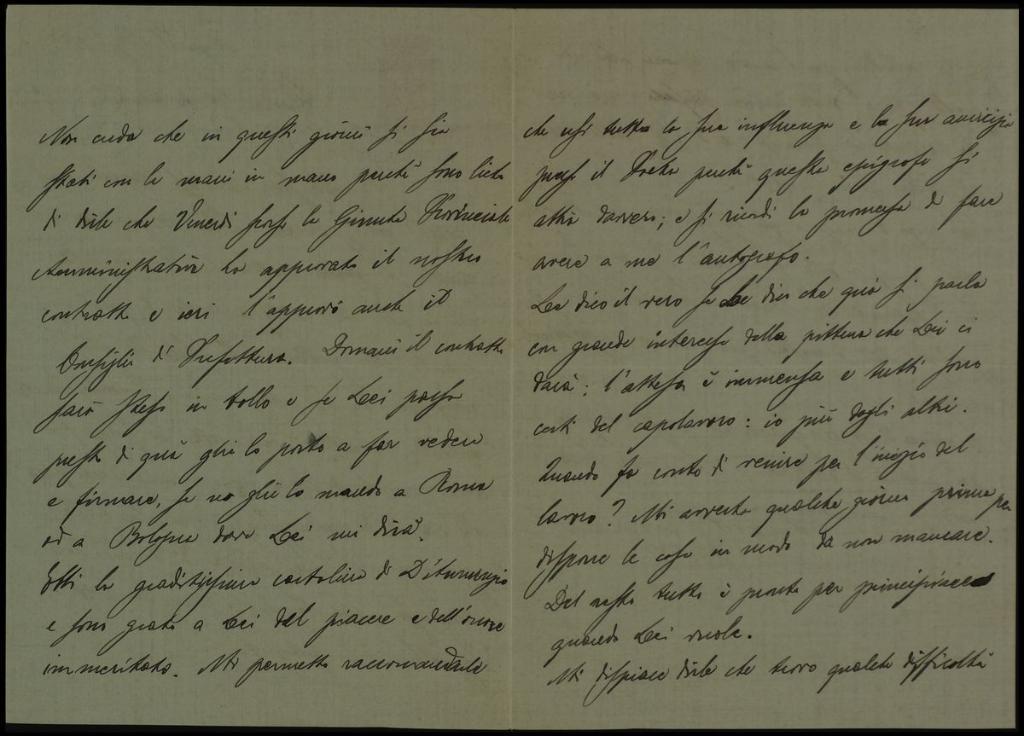 Non creda che in questi giorni si sia
stati con le mani in mano perché sono lieto
di dirle che Venerdì scorso la Giunta Provinciale
Amministrativa ha approvato il nostro
contratto e ieri l'approvò anche il
Consiglio di Prefettura. Domani il contratto
sarà steso in bollo e se Lei passa
presto di quà glie lo porto a far vedere
e firmare, se no glie lo mando a Roma
od a Bologna dove Lei mi dirà.
Ebbi la graditissima cartolina di D'Annunzio
e sono grato a Lei del piacere e dell'onore
immeritato. Mi permetto raccomandarle
che usi tutta la sua influenza e la sua amicizia
presso il Poeta perché questa epigrafe si
abbia davvero; e si ricordi la promessa di fare
avere a me l'autografo.
Le dico il vero se Le dico che quà si parla
con grande interesse della pittura che Lei ci
darà: l'attesa è immensa e tutti sono
certi del capolavoro: io più degli altri.
Quando fa conto di venire per l'inizio del
lavoro? Mi avverta qualche giorno prima per
disporre le cose in modo da non mancare.
Del resto tutto è pronto per principiare
quando Lei vuole.
Mi dispiace dirle che trovo qualche difficoltà